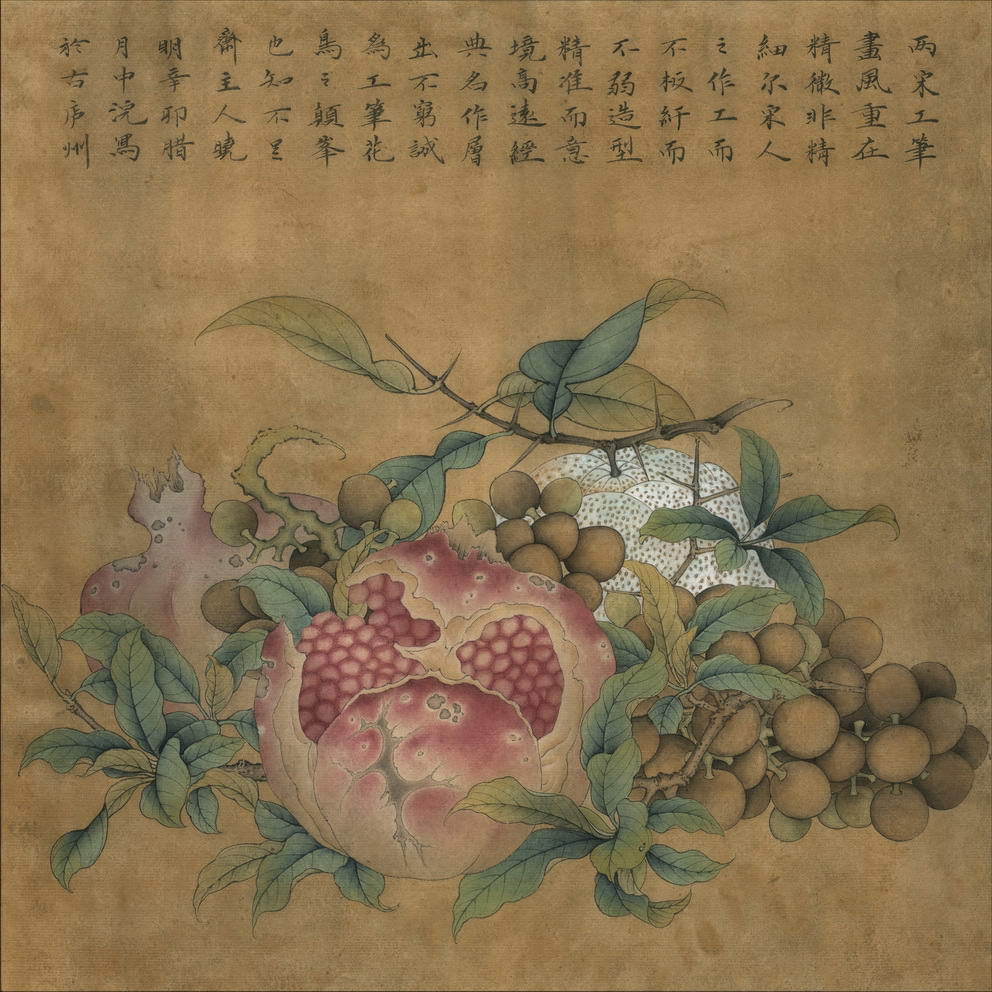 两宋工筆
畫風重在
精微非精
細尔宋人
之作工而
不板纤而
不弱造型
精准而意
境高遠經
典名作層
出不窮誠
為工筆花
鳥之顛峯
也知不足
齋主人曉
明辛卯腊
月中浣馮
於古庐州